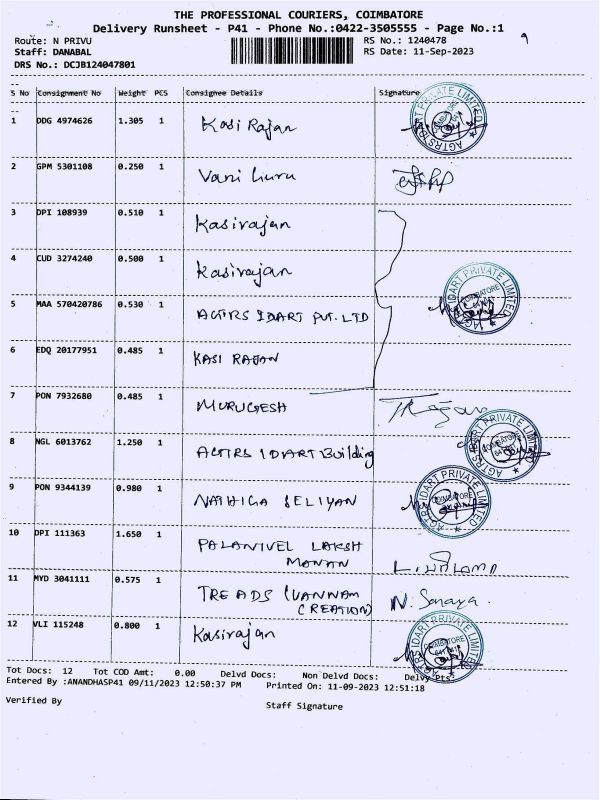 THE PROFESSIONAL COURIERS, COIMBATORE
Delivery Runsheet - P41 - Phone No.:0422-3505555 - Page No.:1
Route: N PRIVU RS No.: 1240478 9
Staff: DANABAL RS Date: 11-Sep-2023
DRS No.: DCJB124047801
S No Consignment No Weight PCS Consignee Details Signature
1 DDG 4974626 1.305 1 Kasi Rajan
2 GPM 5301108 0.250 1 Vani
3 DPI 108939 0.510 1 Kasirajan
4 CUD 3274240 0.500 1 Kasirajan
5 MAA 570420786 0.530 1 AGTRS IDART PVT. LTD
6 EDQ 20177951 0.485 1 KASI RAJAN
7 PON 7932680 0.485 1 MURUGESH
8 NGL 6013762 1.250 1 AGTRS IDART Building
9 PON 9344139 0.980 1
10 DPI 111363 1.650 1 PALANIVEL LAKSH
MANAN
11 MYD 3041111 0.575 1 TREADS (VANNAM
CREATION)
12 VLI 115248 0.800 1 Kasirajan
AGTRS IDART PRIVATE LIMITED
COIMBATORE
AGTRS IDART PRIVATE LIMITED
COIMBATORE
AGTRS IDART PRIVATE LIMITED
COIMBATORE
AGTRS IDART PRIVATE LIMITED
COIMBATORE
AGTRS IDART PRIVATE LIMITED
COIMBATORE
Tot Docs: 12 Tot COD Amt: 0.00 Delvd Docs: Non Delvd Docs: Delvy Pts:
Entered By :ANANDHASP41 09/11/2023 12:50:37 PM Printed On: 11-09-2023 12:51:18
Verified By Staff Signature